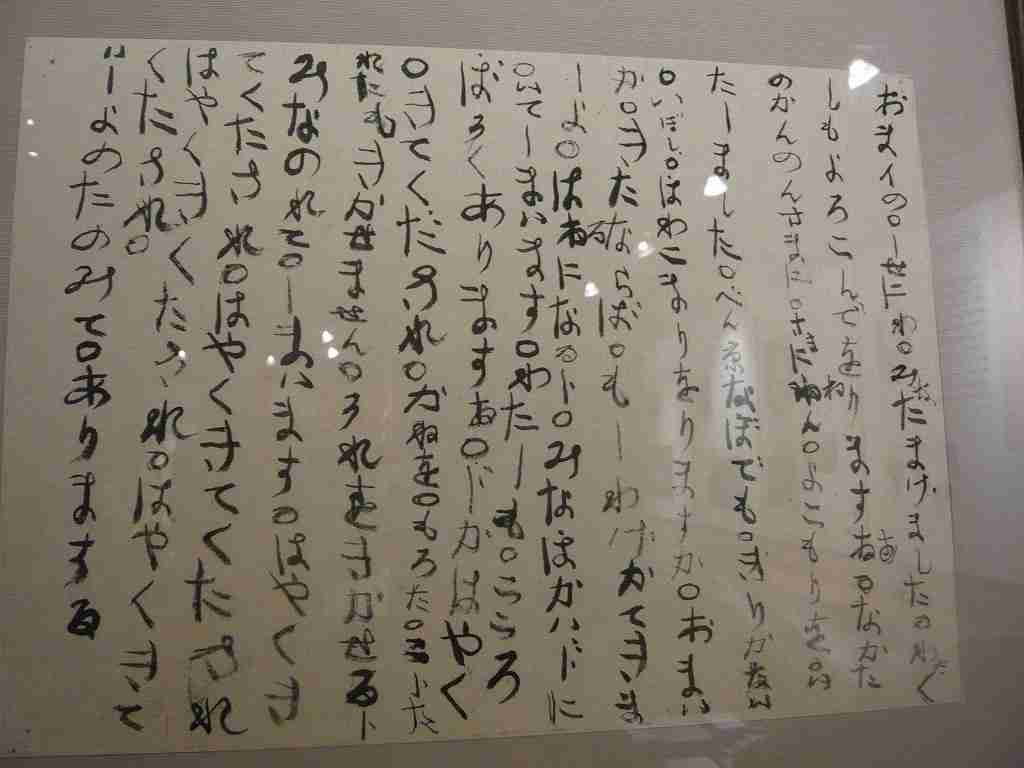 おまイの○しせにわ○みなたまけました○わたく
しもよろこんでをりまする○なかた
のかんのんさまに○さまにねん○よこもりをい
たしました○べん京なぼでも○きりかない
○いぼし○ほわこまりをりますか○おまい
か○きたならば○もしわけかてきま
しよ○はるになるト○みなほかいドに
○いてしまいます○わたしも○こころ
ぼそくありまする○ドかはやく
○きてくだされ○かねを○もろた○こトた
れにもきかせません○それをきかせるト
みなのれて○しまいます○はやくき
てくたされ○はやくきてくたされ
はやくきてくたされ○はやくきて
くたされ○
いしよのたのみて○ありまする